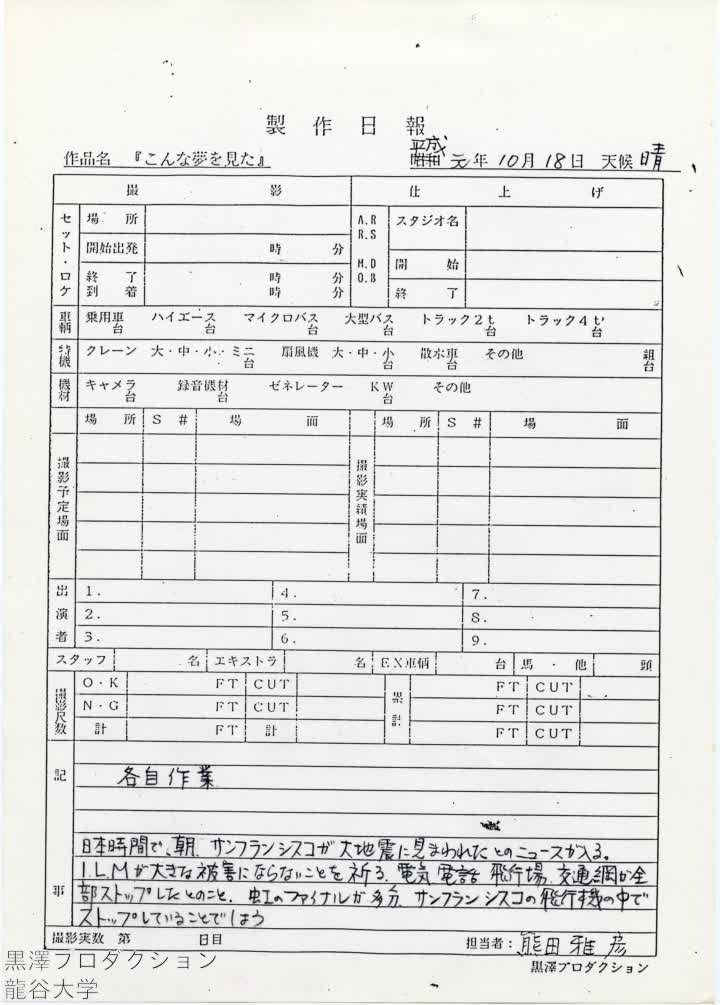 製作日報
作品名 『こんな夢を見た』 平成 昭和 元年 10月 18日 天候 晴
撮影 仕上げ
セット・ロケ 場所 A.R R.S スタジオ名
開始出発 時 分 M.D O.B 開始
終了 時 分 終了
到着 時 分
車輌 乗用車 台 ハイエース 台 マイクロバス 台 大型バス 台 トラック2t 台 トラック4t 台
特機 クレーン 大・中・小・ミニ 台 扇風機 大・中・小 台 散水車 台 その他 組 台
機材 キャメラ 台 録音機材 台 ゼネレーター KW 台 その他
撮影予定場面 場所 S# 場面 撮影実績場面 場所 S# 場面
出演者 1. 4. 7.
2. 5. 8.
3. 6. 9.
スタッフ 名 エキストラ 名 EX車輌 台 馬・他 頭
撮影尺数 O・K FT CUT 累計 FT CUT
N・G FT CUT FT CUT
計 FT 計 FT CUT
記事
各自作業
日本時間で、朝、サンフランシスコが大地震に見まわれたとのニュースが入る。
I.L.Mが大きな被害にならないことを祈る。電気 電話 飛行場、交通網が全
部ストップしたとのこと。虹のファイナルが多分、サンフランシスコの飛行機の中で
ストップしていることでしょう
撮影実数 第 日目 担当者: 熊田雅彦
黒澤プロダクション
黒澤プロダクション
龍谷大学